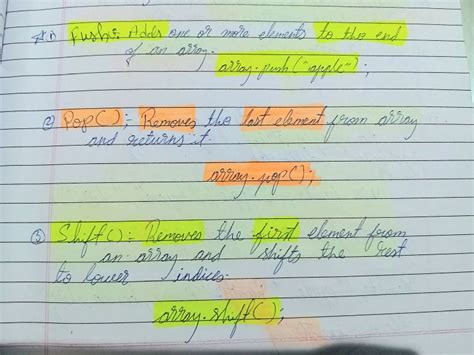 1) Push:- Adds one or more elements to the end
of an array.
array.push("apple");
2) Pop():- Removes the last element from array
and returns it.
array.pop();
3) Shift():- Removes the first element from
an array and shifts the rest
to lower indices.
array.shift();